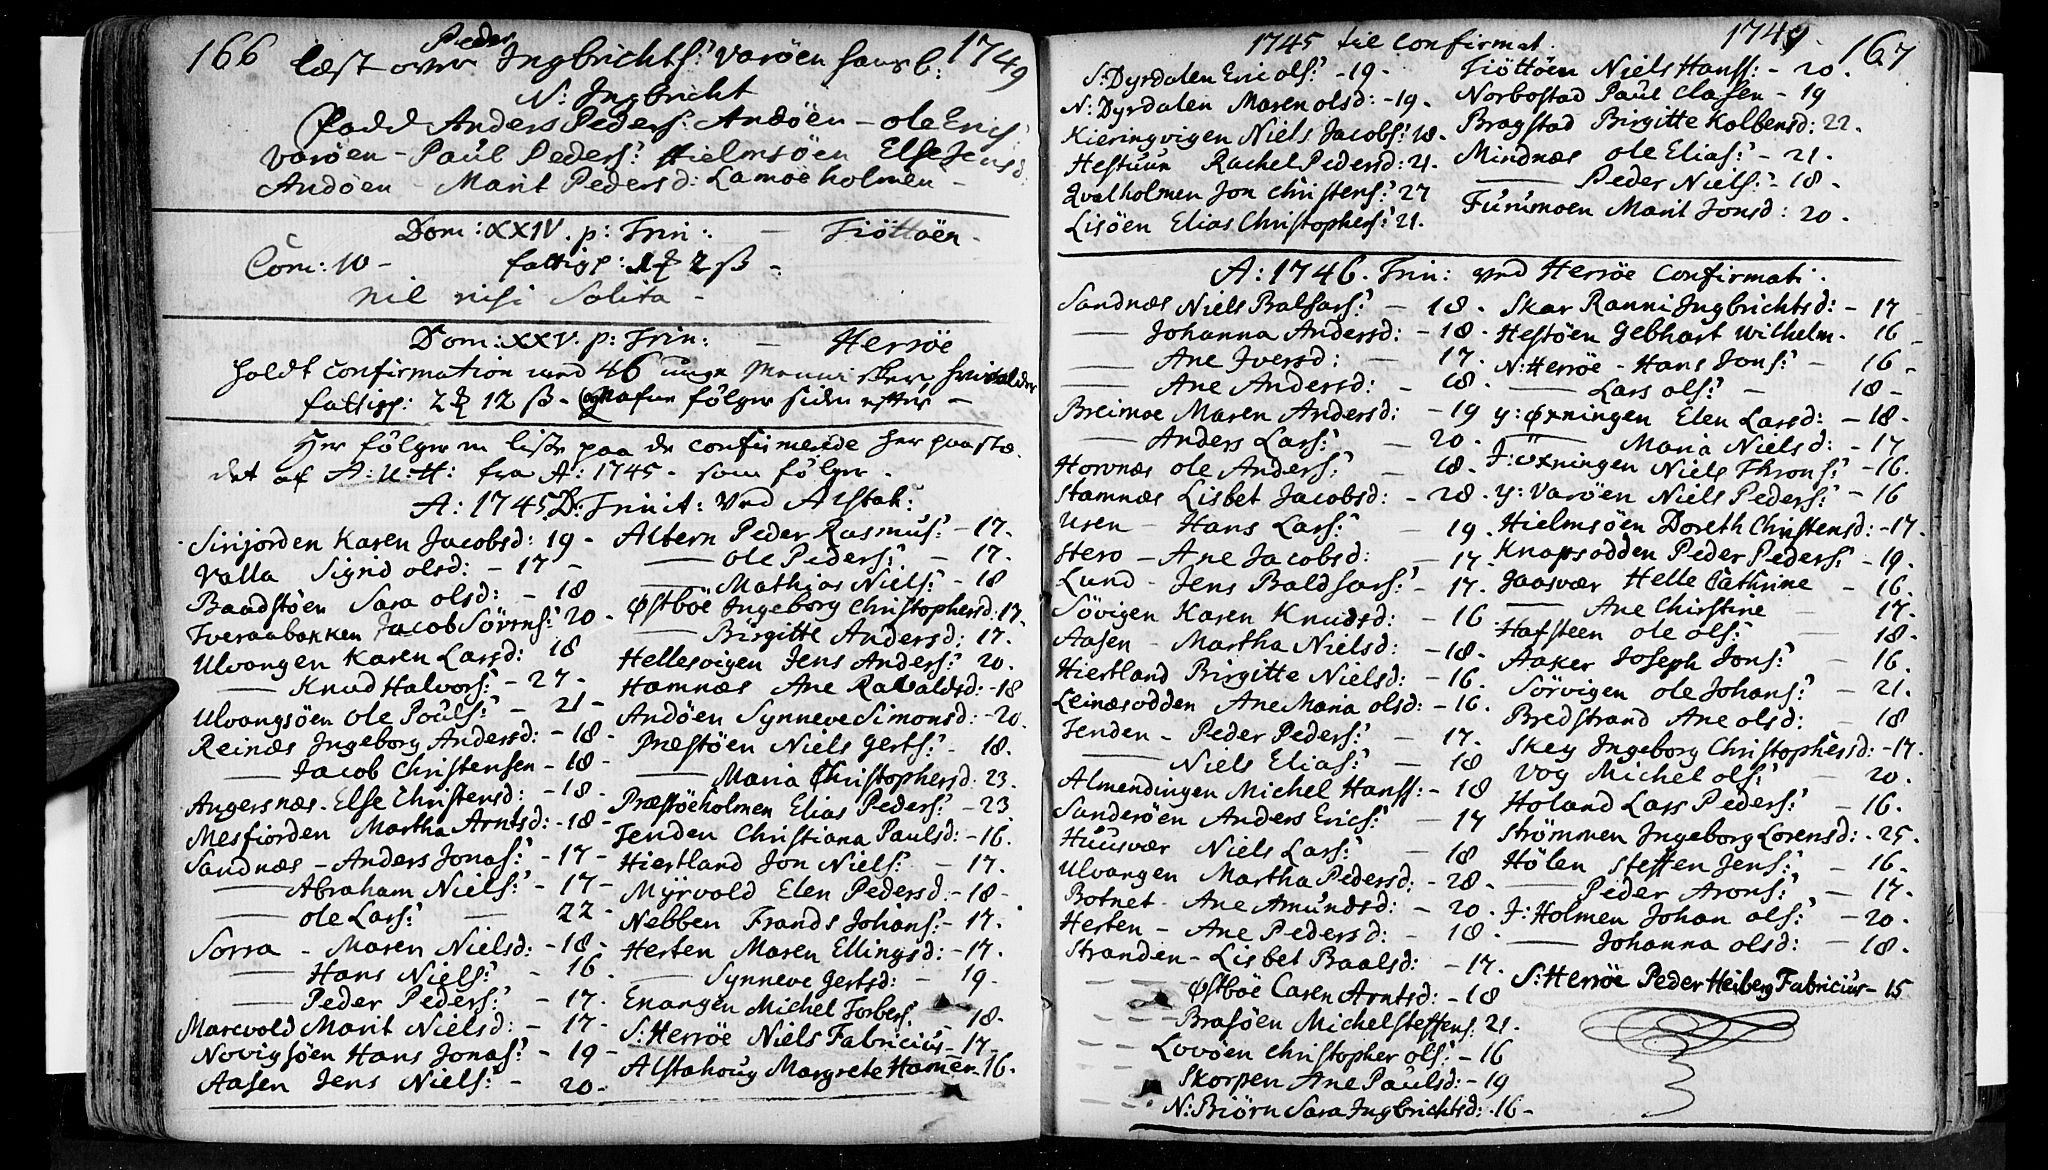 166 1749
læst over Peder Ingbrichts: Varöen hans b:
N: Ingbricht
Fadd Anders Peders: Andöen - ole Erics:
Varöen - Paul Peders: Hielmsöen Else Jensd:
Andöen - Marit Pedersd: Lamoeholmen -
Dom: XXIV. p: Trin: - Tiöttöen -
Com: 10 - fattige: 2 ß -
nil nisi Solita -
Dom: XXV. p: Trin: - Herröe
holdt confirmation med 46 unge Mennisker,
fattige: 2 12 ß - følger siden efter -
Her følger en liste paa de confirmerede her paa stæ-
det af A: U: H: fra A: 1745 - som følger -
A: 1745 D: Trinit: Ved Alstah:
Sinjorden Karen Jacobsd: 19 -
Valla Signd olsd: - 17 -
Baadstöen Sara olsd: - 18
Tveraabakken Jacob Sörens: 20 -
Ulvangen Karen Larsd: 18
— Knud Halvors: - 27 -
Ulvangsöen ole Pouls: - 21 -
Reinæs Ingeborg Andersd: - 18 -
— Jacob Christensen - 18 -
Angersnæs - Else Christensd: - 18 -
Mesfiorden Martha Arntsd: - 18 -
Sandnæs - Anders Jonas: - 17 -
— Abraham Niels: - 17 -
— ole Lars: — 22 -
Sorra - Maren Nielsd: - 18 -
— Hans Niels: - 16
— Peder Peders: - 17.
Marevold Marit Nielsd: - 17 -
Novigsöen Hans Jonas: - 19 -
Aasen Jens Niels: - 20 -
Altern Peder Rasmus: - 17.
— ole Peders: - 17.
— Mathias Niels: - 18
Østböe Ingeborg Christophersd. 17.
— Birgitte Andersd: 17.
Hellesvigen Jens Anders: 20.
Hamnæs Ane Ravaldsd: - 18
Andöen Synneve Simonsd: - 20.
Præstöen Niels Gerts: - 18.
— Maria Christophersd. 23.
Præstöeholmen Elias Peders: - 23.
Tenden Christiana Paulsd: - 16.
Hiertland Jon Niels: - 17.
Myrvold Elen Pedersd. - 18 -
Nebben Frands Johans: - 17.
Herten Maren Ellingsd: - 17.
— Synneve Gertsd: - 19 -
Enangen Michel Torbers: - 18.
S: Herröe Niels Fabricius - 17 -
Alstahoug Margrete Hamer - 16.
1745 til Confirmat. 1749. 167
S: Dyrdalen Eric ols: - 19 -
N: Dyrdalen Maren olsd: - 19.
Kieringvigen Niels Jacobs: 18.
Hestuun Rachel Pedersd: 21.
Qvalholmen Jon Christens: 27
Lisöen Elias Christophers: 21.
Tiöttöen Niels Hanss: - 20.
Norbostad Paul Clasen - 19
Bragstad Birgitte Kolbensd: 22.
Mindnæs ole Elias: - 21.
— Peder Niels: - 18 -
Furumoen Marit Jonsd: 20.
A: 1746. Trin: ved Herröe Confirmati.
Sandnæs Niels Balsars: - 18.
— Johanna Andersd: - 18.
— Ane Iversd: — 17.
— Ane Andersd: - 18.
Breimoe Maren Andersd: - 19
— Anders Lars: - 20.
Horvnæs ole Anders: - 18.
Stamnæs Lisbet Jacobsd: - 28.
Uren - Hans Lars: - 19.
Stero - Ane Jacobsd: - 17.
Lund - Jens Baldsars: - 17.
Sövigen Karen Knudsd: - 16.
Aasen - Martha Nielsd: - 18.
Hiertland Birgitte Nielsd: - 16.
Leinæsodden Ane Maria olsd: - 16.
Tenden - Peder Peders: - 17.
— Niels Elias: - 18
Almendingen Michel Hanss: - 18
Sanderöen Anders Erics: - 17
Huusvær Niels Lars: - 18
Ulvangen Martha Pedersd: - 28 -
Botnet - Ane Amundsd: - 20.
Herten - Ane Pedersd: - 18.
Stranden - Lisbet Baalsd: - 17.
Østböe Caren Arntsd: - 18
Brasöen Michel Steffens: 21.
Lovöen Christopher ols: - 16
Skorpen Ane Paulsd: - 19
N: Biörn Sara Ingbrichtsd: - 16 -
Skar Ranni Ingbrichtsd: - 17
Hestöen Gebhart Wilhelm. 16 -
N: Herröe - Hans Jons: - 16 -
— Lars ols: - 18 -
Y: Øxningen Elen Larsd: - 18 -
— Maria Nielsd: - 17
I: Øxningen Niels Throns: - 16.
Y: Varöen Niels Peders: - 16
Hielmsöen Doreth Christensd: - 17.
Knapsodden Peder Peders: - 19.
Jaasvær Helle Cathrine - 16.
— Ane Chirstine - 17.
Hafsteen ole ols: - 18.
Aaker Joseph Jons: - 16.
Sörvigen ole Johans: - 21.
Bredstrand Ane olsd: - 18
Skey Ingeborg Christophersd: - 17.
Vog Michel ols: - 20.
Holand Lars Peders: - 16.
Strömmen Ingeborg Lorensd: - 25.
Hölen Steffen Jens: - 16 -
— Peder Arons: - 17.
I: Holmen Johan ols: - 20.
— Johanna olsd: - 18.
S: Herröe Peder Heiberg Fabricius - 15